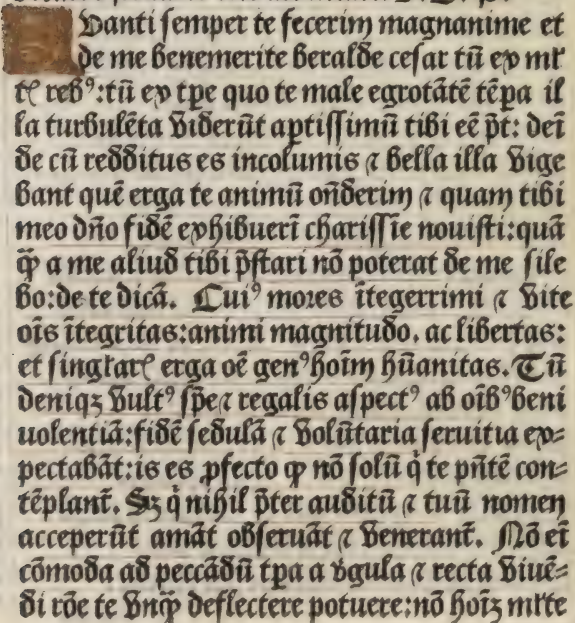 Uanti semper te fecerim magnanime et
de me benemerite beralde cesar tū ex ml'
tꝭ rebꝰ: tū ex tpe quo te male egrotātē tēpa il
la turbulēta viderūt aptissimū tibi eē pt̄: dei
de cū redditus es incolumis ⁊ bella illa vige
bant quē erga te animū on̄derim ⁊ quam tibi
meo dn̄o fidē exhibuerī charissīe nouisti: quā
ꝙ̄ a me aliud tibi p̄stari nō poterat de me sile
bo: de te dicā. Cuiꝰ mores ītegerrimi ⁊ vite
oīs ītegritas: animi magnitudo. ac libertas:
et singlarꝭ erga oē genꝰ hoīm hūanitas. Tū
deniqꝫ vultꝰ sp̄e ⁊ regalis aspectꝰ ab oībꝰ beni
uolentiā: fidē sedulā ⁊ volūtaria seruitia ex⸗
pectabāt: is es ꝓfecto ꝙ nō solū q̇ te pn̄tē con⸗
tēplant̄. Sꝫ q̇ nihil p̄ter auditū ⁊ tuū nomen
acceperūt amāt obseruāt ⁊ venerant̄. Nō eī
cōmoda ad peccādū tpa a vgula ⁊ recta viuē⸗
di rōe te vnꝙ̄ deflectere potuere: nō hoīꝫ ml'te